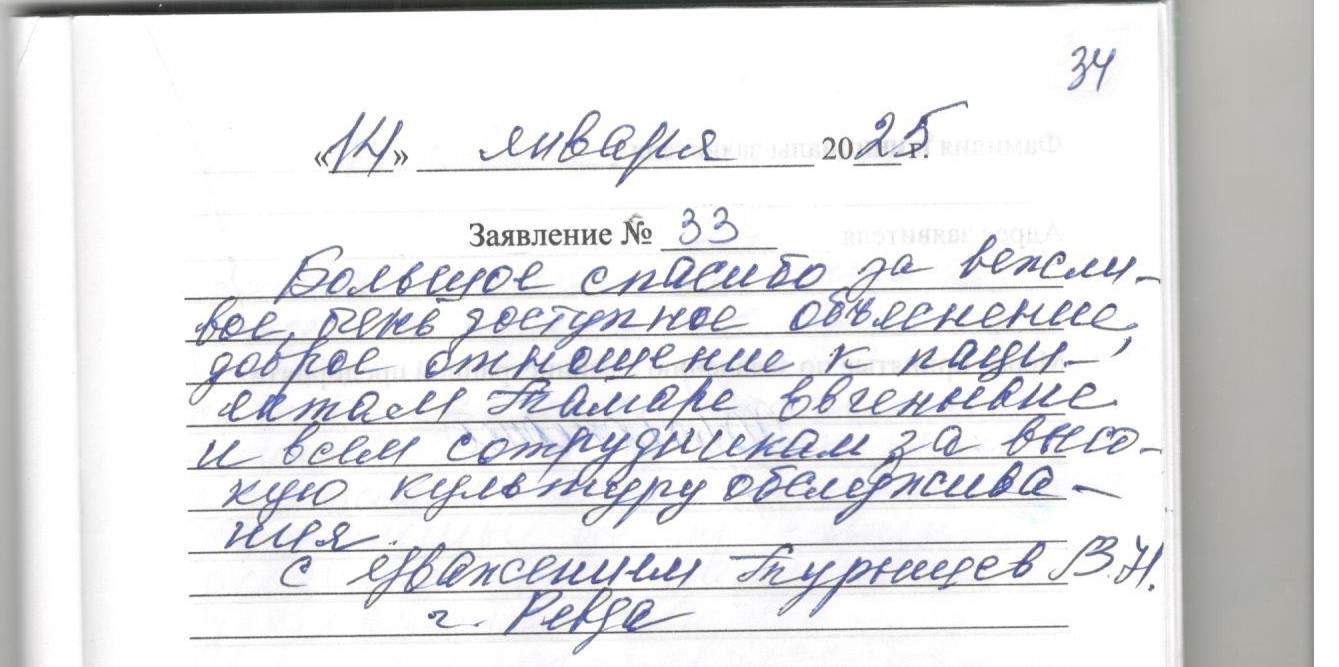 34
«14» января 2025 г.
Заявление № 33
Большое спасибо за вежли-
вое, очень доступное объяснение,
доброе отношение к паци-
ентам Тамаре Евгеньевне
и всем сотрудникам за высо-
кую культуру обслужива-
ния.
с уважением В.Н.
г. Ревда